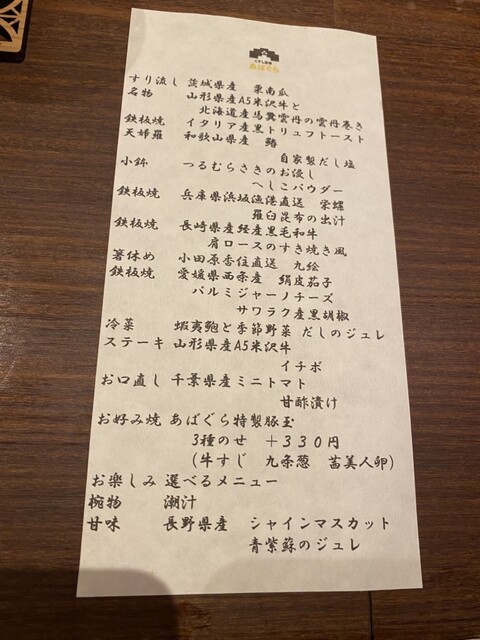 あばぐら
すり流し 茨城県産 栗南瓜
名物 山形県産A5米沢牛と
北海道産馬糞雲丹の雲丹巻き
鉄板焼 イタリア産黒トリュフトースト
天婦羅 和歌山県産 鱧
自家製だし塩
小鉢 つるむらさきのお浸し
へしこパウダー
鉄板焼 兵庫県浜坂漁港直送 栄螺
羅臼昆布の出汁
鉄板焼 長崎県産経産黒毛和牛
肩ロースのすき焼き風
箸休め 小田原香住直送 九絵
鉄板焼 愛媛県西条産 絹皮茄子
パルミジャーノチーズ
サワラク産黒胡椒
冷菜 蝦夷鮑と季節野菜 だしのジュレ
ステーキ 山形県産A5米沢牛
イチボ
お口直し 千葉県産ミニトマト
甘酢漬け
お好み焼 あばぐら特製豚玉
3種のせ +330円
(牛すじ 九条葱 茜美人卵)
お楽しみ 選べるメニュー
椀物 潮汁
甘味 長野県産 シャインマスカット
青紫蘇のジュレ